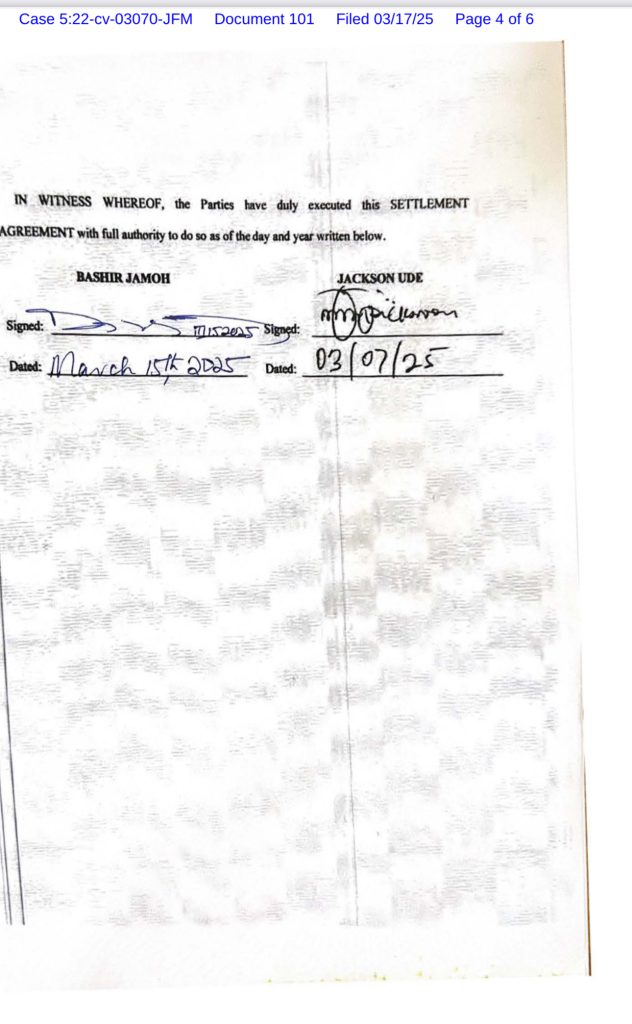 Case 5:22-cv-03070-JFM Document 101 Filed 03/17/25 Page 4 of 6
IN WITNESS WHEREOF, the Parties have duly executed this SETTLEMENT
AGREEMENT with full authority to do so as of the day and year written below.
BASHIR JAMOH JACKSON UDE
Signed: Signed:
Dated: March 15th 2025 Dated: 03/07/25